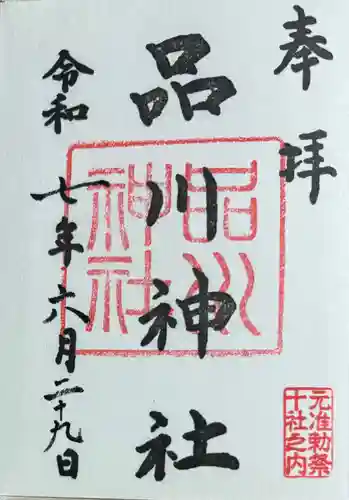 奉拝
品川神社
令和七年六月二十九日
品川神社
元准勅祭
十社之内